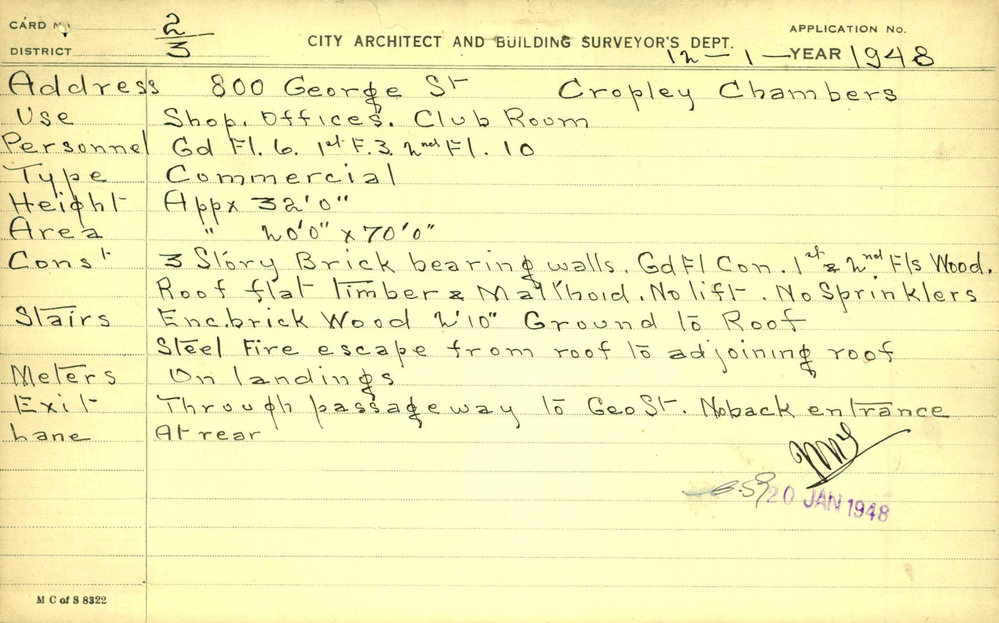 CARD No. 2/3
DISTRICT
CITY ARCHITECT AND BUILDING SURVEYOR'S DEPT.
APPLICATION No.
12 - 1 - YEAR 1948
Address 800 George St Cropley Chambers
Use Shop. Offices. Club Room
Personnel Gd Fl. 6. 1st F. 3. 2nd Fl. 10
Type Commercial
Height Appx 32'0"
Area " 20'0" x 70'0"
Const 3 Story Brick bearing walls. Gd Fl Con. 1st & 2nd Fls Wood.
Roof flat timber & Malthoid. No lift. No Sprinklers
Stairs Enc. brick Wood 2'10" Ground to Roof
Steel Fire escape from roof to adjoining roof
Meters On landings
Exit Through passageway to Geo St. No back entrance
Lane At rear
20 JAN 1948
M C of S 8322